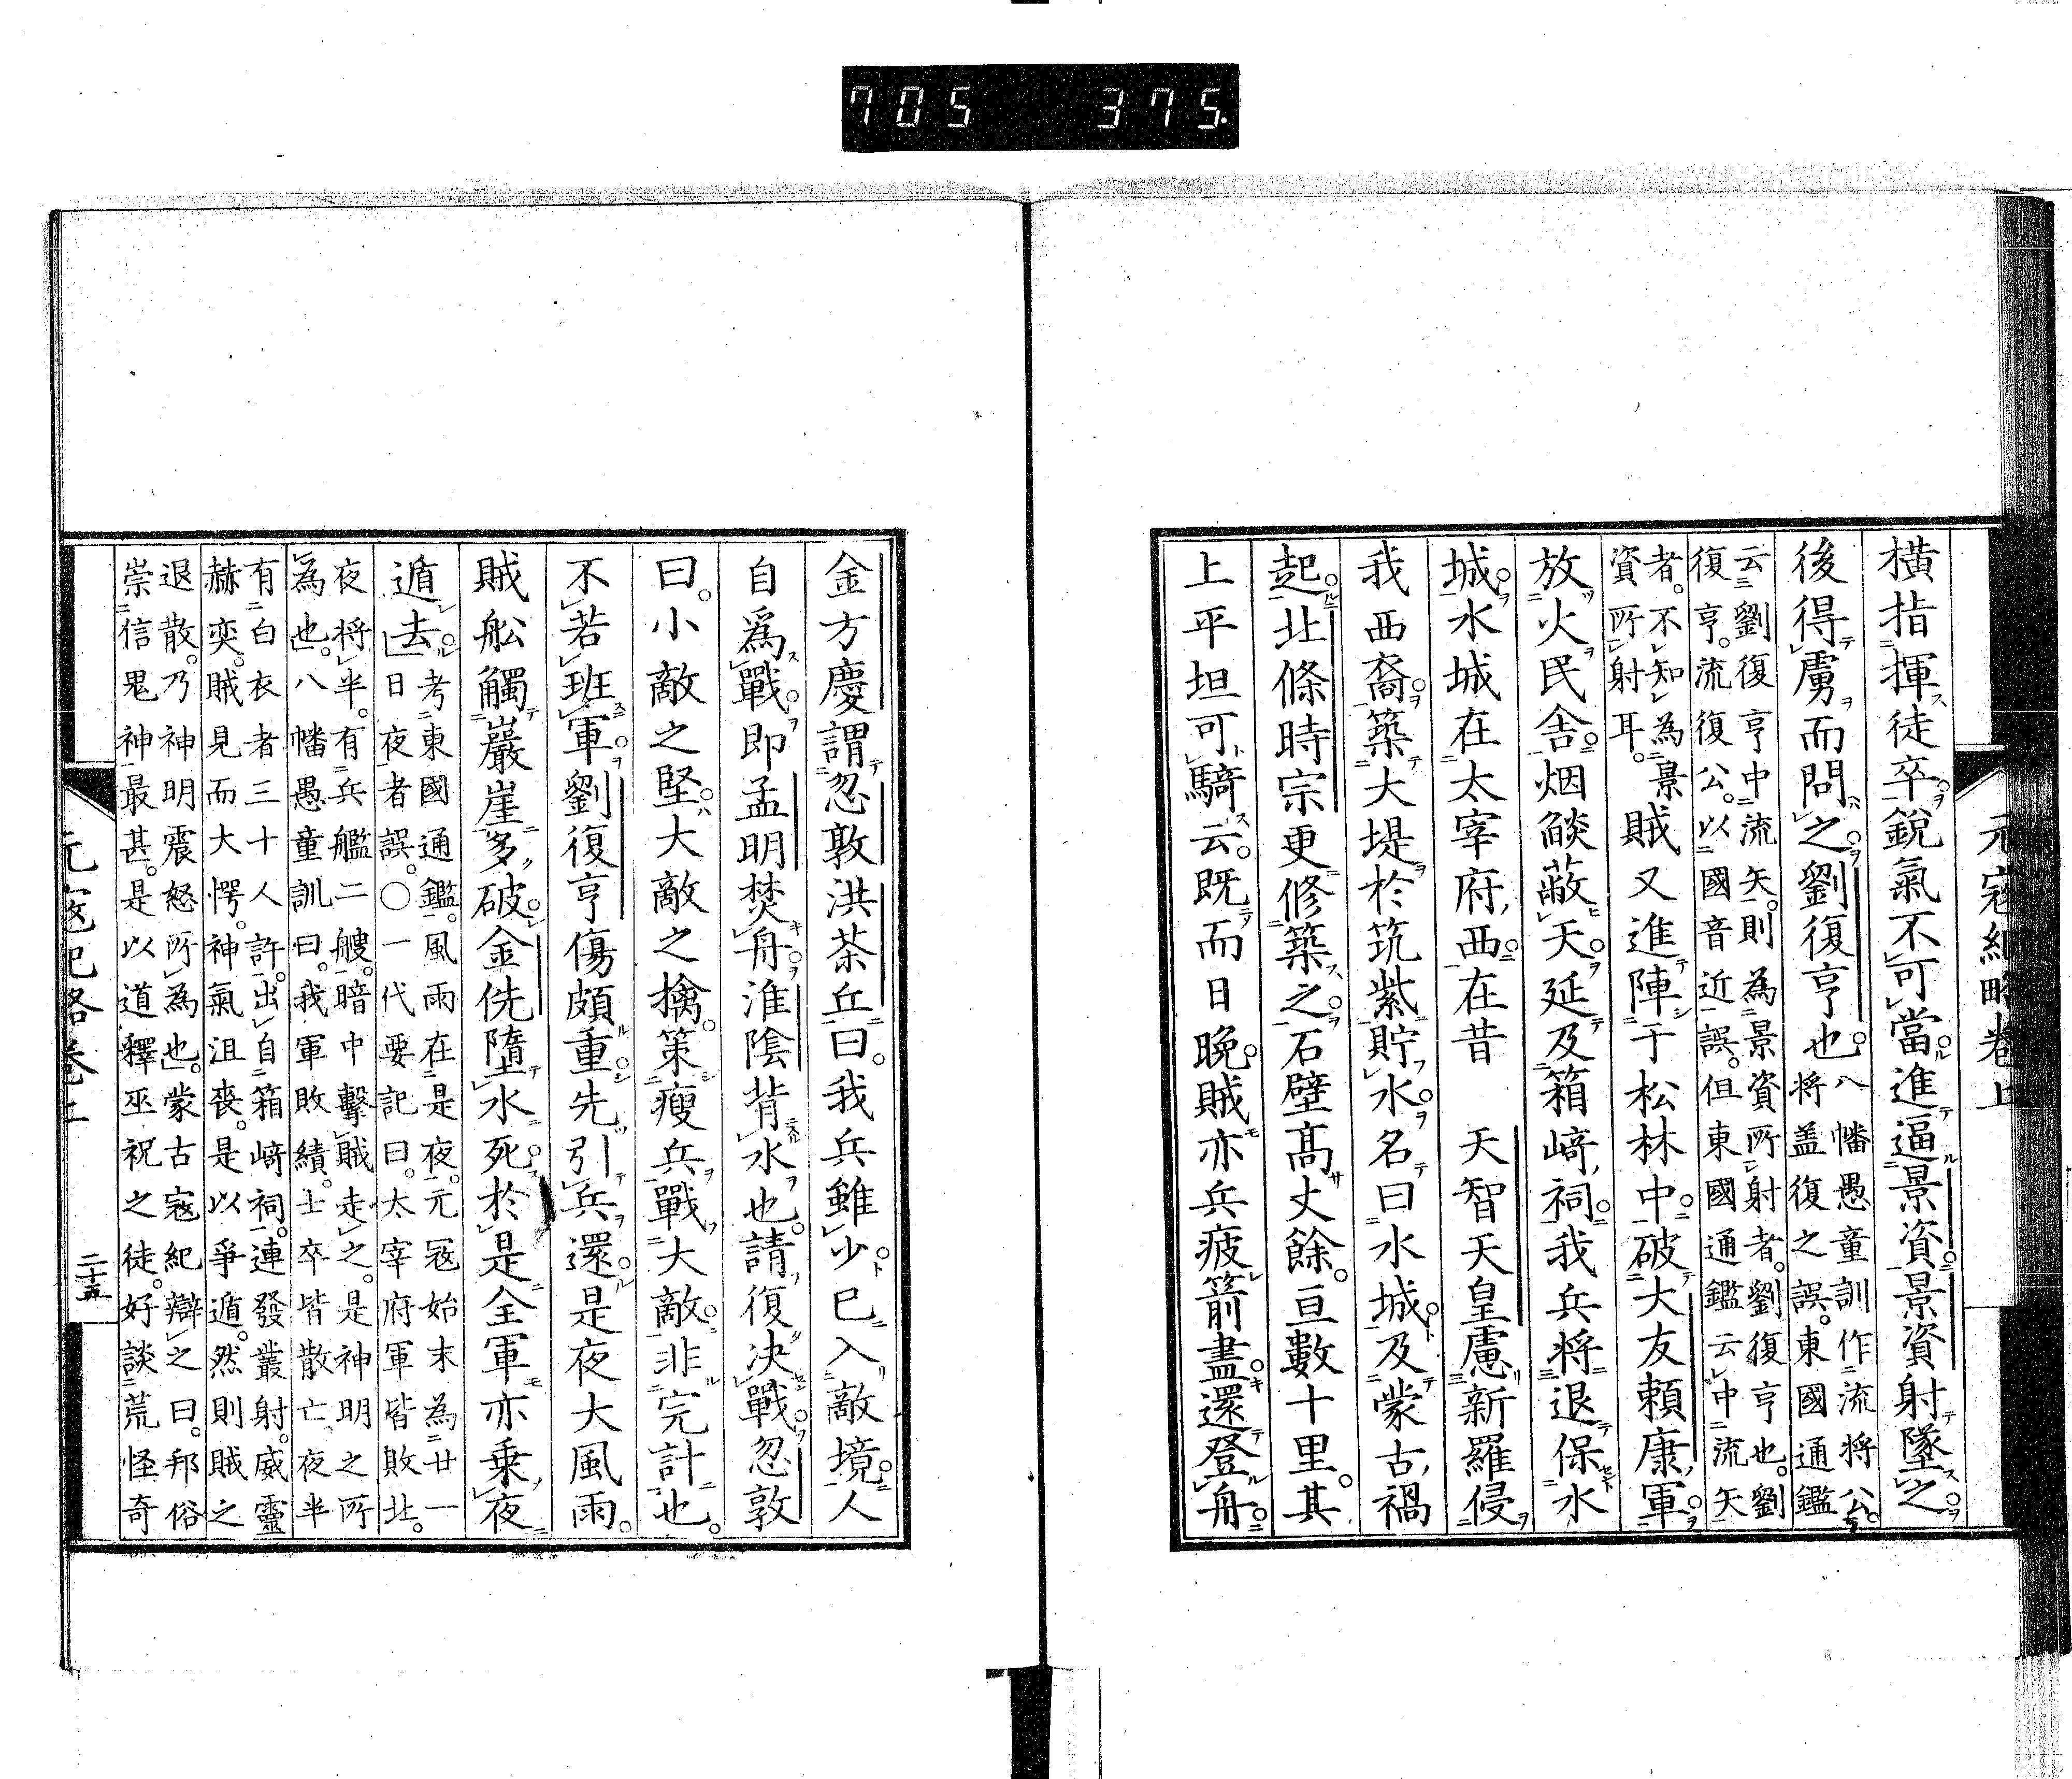 705 375.
元寇紀略卷上
橫指揮徒卒銳氣不可當進逼景資景資射墜之
後得虜而問之劉復亨也八幡愚童訓作流将公
将盖復之誤東國通鑑
云劉復亨中流矢則為景資所射者劉復亨也劉
復亨流復公以國音近誤但東國通鑑云中流矢
者不知為景
資所射耳賊又進陣于松林中破大友賴康軍
放火民舍烟燄蔽天延及箱﨑祠我兵将退保水
城水城在太宰府西在昔 天智天皇慮新羅侵
我西裔築大堤於筑紫貯水名曰水城及蒙古禍
起北條時宗更修築之石壁高丈餘亘數十里其
上平坦可騎云既而日晚賊亦兵疲箭盡還登舟
金方慶謂忽敦洪茶丘曰我兵雖少已入敵境人
自爲戰即孟明焚舟淮陰背水也請復决戰忽敦
曰小敵之堅大敵之擒策瘦兵戰大敵非完計也
不若班軍劉復亨傷頗重先引兵還是夜大風雨
賊舩觸巖崖多破金侁墮水死於是全軍亦乗夜
遁去考東國通鑑風雨在是夜元冦始末為廿一
日夜者誤○一代要記曰太宰府軍皆敗北
夜将半有兵艦二艘暗中擊賊走之是神明之所
為也八幡愚童訓曰我軍敗績士卒皆散亡夜半
有白衣者三十人許出自箱﨑祠連發叢射威靈
赫奕賊見而大愕神氣沮喪是以爭遁然則賊之
退散乃神明震怒所為也蒙古寇紀辯之曰邦俗
崇信鬼神最甚是以道釋巫祝之徒好談荒怪奇
元寇紀略卷上
二十五